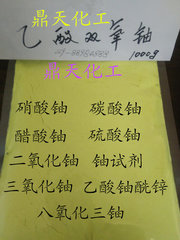 鼎天化工
乙酸双氧铀
1000g
鼎天化工
硝酸铀 碳酸铀
醋酸铀 硫酸铀
二氧化铀 铀试剂
三氧化铀 乙酸铀酰锌
八氧化三铀